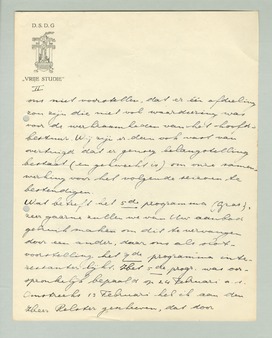 D.S.D.G
"VRIJE STUDIE"
II
ons niet voorstellen, dat er één afdeeling
zou zijn die niet vol waardeering was
voor de werkzaamheden van het hoofd-
bestuur. Wij zijn er dan ook vast van
overtuigd dat er genoeg belangstelling
bestaat (en gewenscht is) om onze samen-
werking voor het volgende seizoen te
bestendigen.
Wat betreft het 5de programma (Graa),
zeer gaarne zullen we van Uw aanbod
gebruik maken om dit te vervangen
door een ander, daar ons als slot-
voorstelling het programma in-
teressanter lijkt. Het 5de progr. was oor-
spronkelijk bepaald op 24 Februari a.s.
Omstreeks 15 Februari heb ik aan den
Heer geschreven, dat door